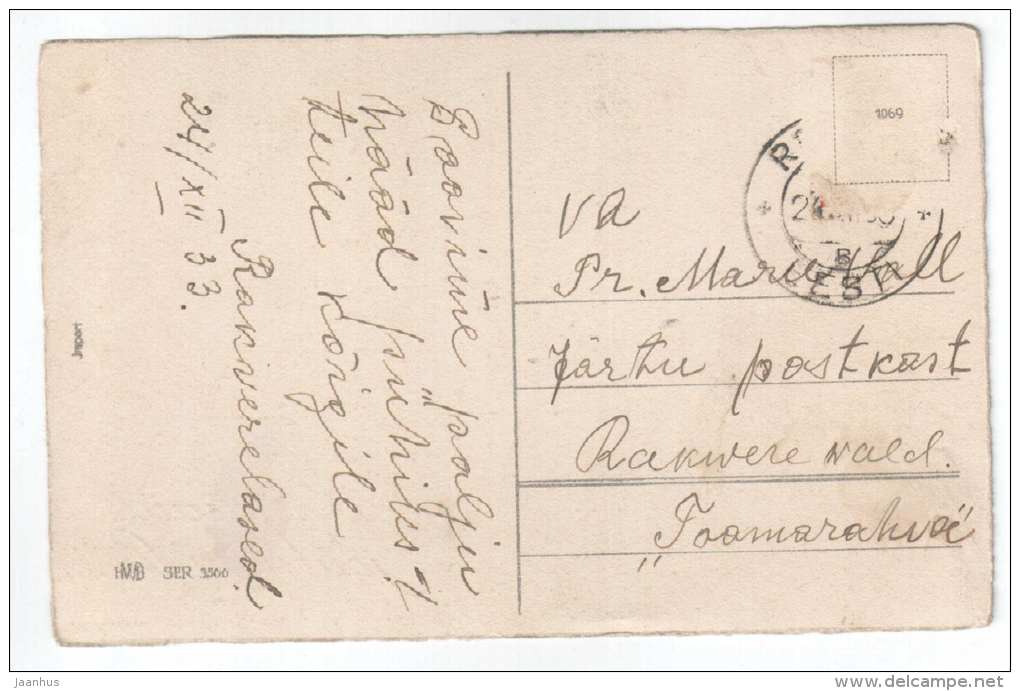 Soovime palju
hääd pühiks!
teile kõigile
Rakverelased.
24/XII 33.
Import
HWB SER 3500
1069
EESTI
B
Va
Pr. Marie Kall
Järtu postkast
Rakwere wald.
„Toomarahva“
Jaanhus
www.delcampe.net